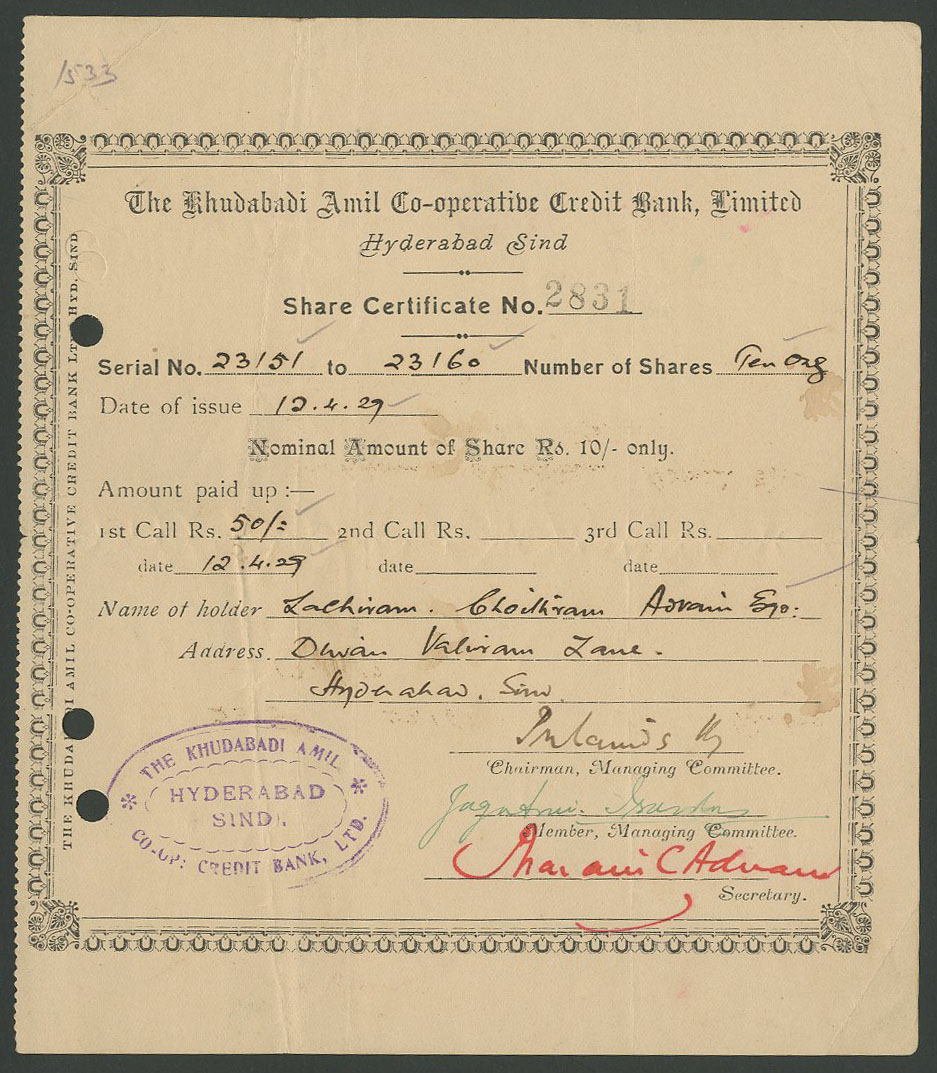 1533
The Khudabadi Amil Co-operative Credit Bank, Limited
Hyderabad Sind
Share Certificate No. 2831
Serial No. 23151 to 23160 Number of Shares Ten Only
Date of issue 12.4.29
Nominal Amount of Share Rs. 10/- only.
Amount paid up :—
1st Call Rs. 50/= 2nd Call Rs. 3rd Call Rs.
date 12.4.29 date date
Name of holder Lachiram. Choithram Advani Esq:
Address. Dewan Valiram Lane.
Hyderabad. Sind.
Chairman, Managing Committee.
Member, Managing Committee.
C Advani
Secretary.
THE KHUDABADI AMIL
HYDERABAD
SIND.
CO-OP: CREDIT BANK, LTD.
THE KHUDABADI AMIL CO-OPERATIVE CREDIT BANK LTD HYD, SIND